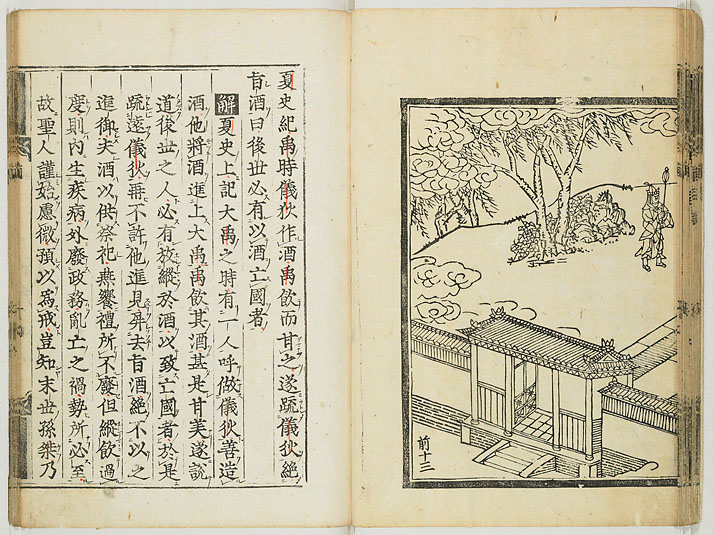 前十三
夏史紀禹時儀狄作酒禹飲而甘之遂疏儀狄絕
旨酒曰後世必有以酒亡國者
解夏史上記大禹之時有一人呼做儀狄善造
酒他將酒進上大禹禹飲其酒甚是甘美遂說
道後世之人必有放縱於酒以致亡國者於是
疏遠儀狄再不許他進見屏去旨酒絕不以之
進御夫酒以供祭祀燕饗禮所不廢但縱飲過
度則內生疾病外廢政務亂亡之禍勢所必至
故聖人謹始慮微預以爲戒豈知末世孫桀乃